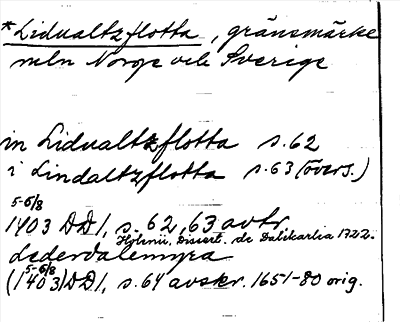 *Lidualtzflotta, gränsmärke
mln Norge och Sverige
in Lidualtzflotta s. 62
i Lindaltzflotta s. 63 (övers.)
5-6/8
1403 DD1, s. 62, 63 avtr.
Hylenii, Dissert. de Dalekarlia 1722.
Lederdalemyra
5-6/8
(1403) DD1, s. 64 avskr. 1651-80 orig.